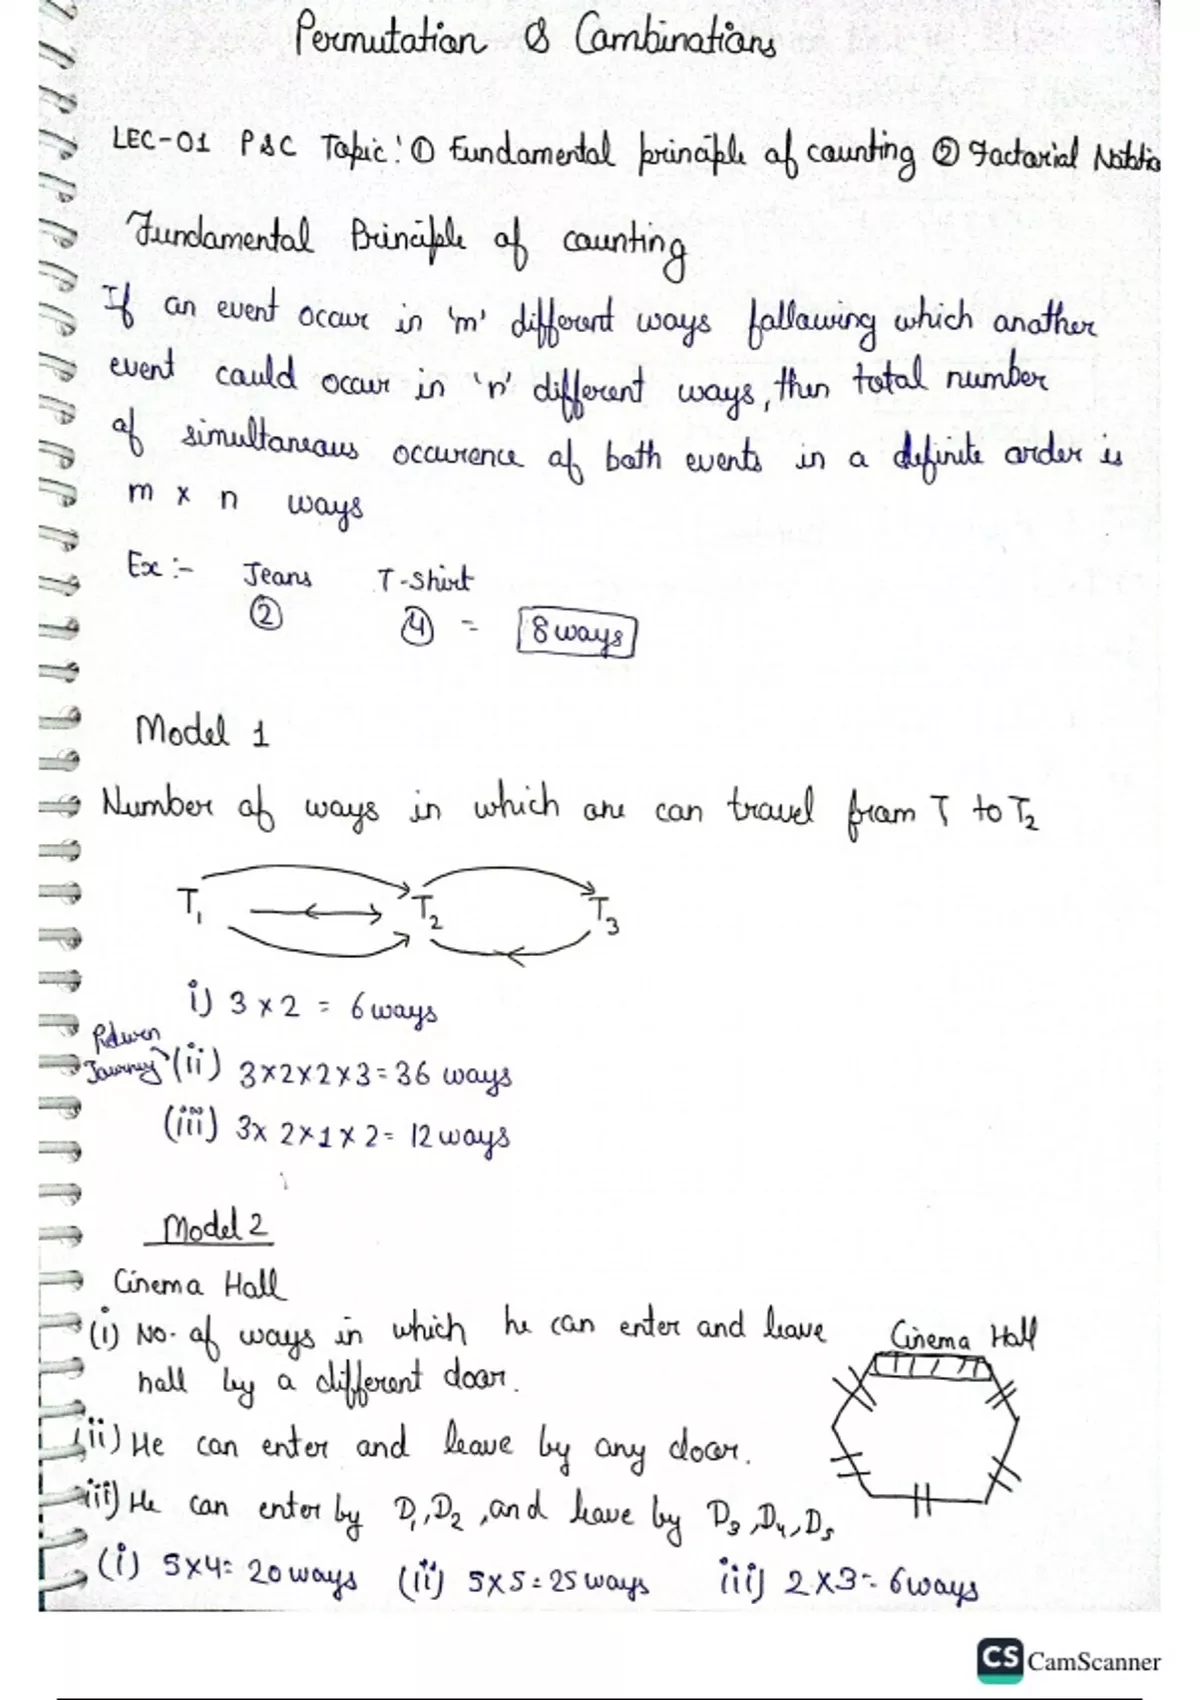 Permutation & Combinations
LEC-01 P&C Topic: ① Fundamental principle of counting ② Factorial Notatio
Fundamental Principle of counting
If an event occur in 'm' different ways following which another
event could occur in 'n' different ways, then total number
of simultaneous occurence of both events in a definite order is
m × n ways
Ex :- Jeans T-Shirt
② ④ = 8 ways
Model 1
Number of ways in which one can travel from T to T2
T1 T2 T3
i) 3 × 2 = 6 ways
Return
Journey (ii) 3×2×2×3=36 ways
(iii) 3× 2×1×2= 12 ways
Model 2
Cinema Hall
(i) No. of ways in which he can enter and leave
hall by a different door.
Cinema Hall
ii) He can enter and leave by any door.
iii) He can enter by D1, D2, and leave by D3, D4, D5
(i) 5×4= 20 ways (ii) 5×5=25 ways iii) 2×3= 6 ways
CS CamScanner